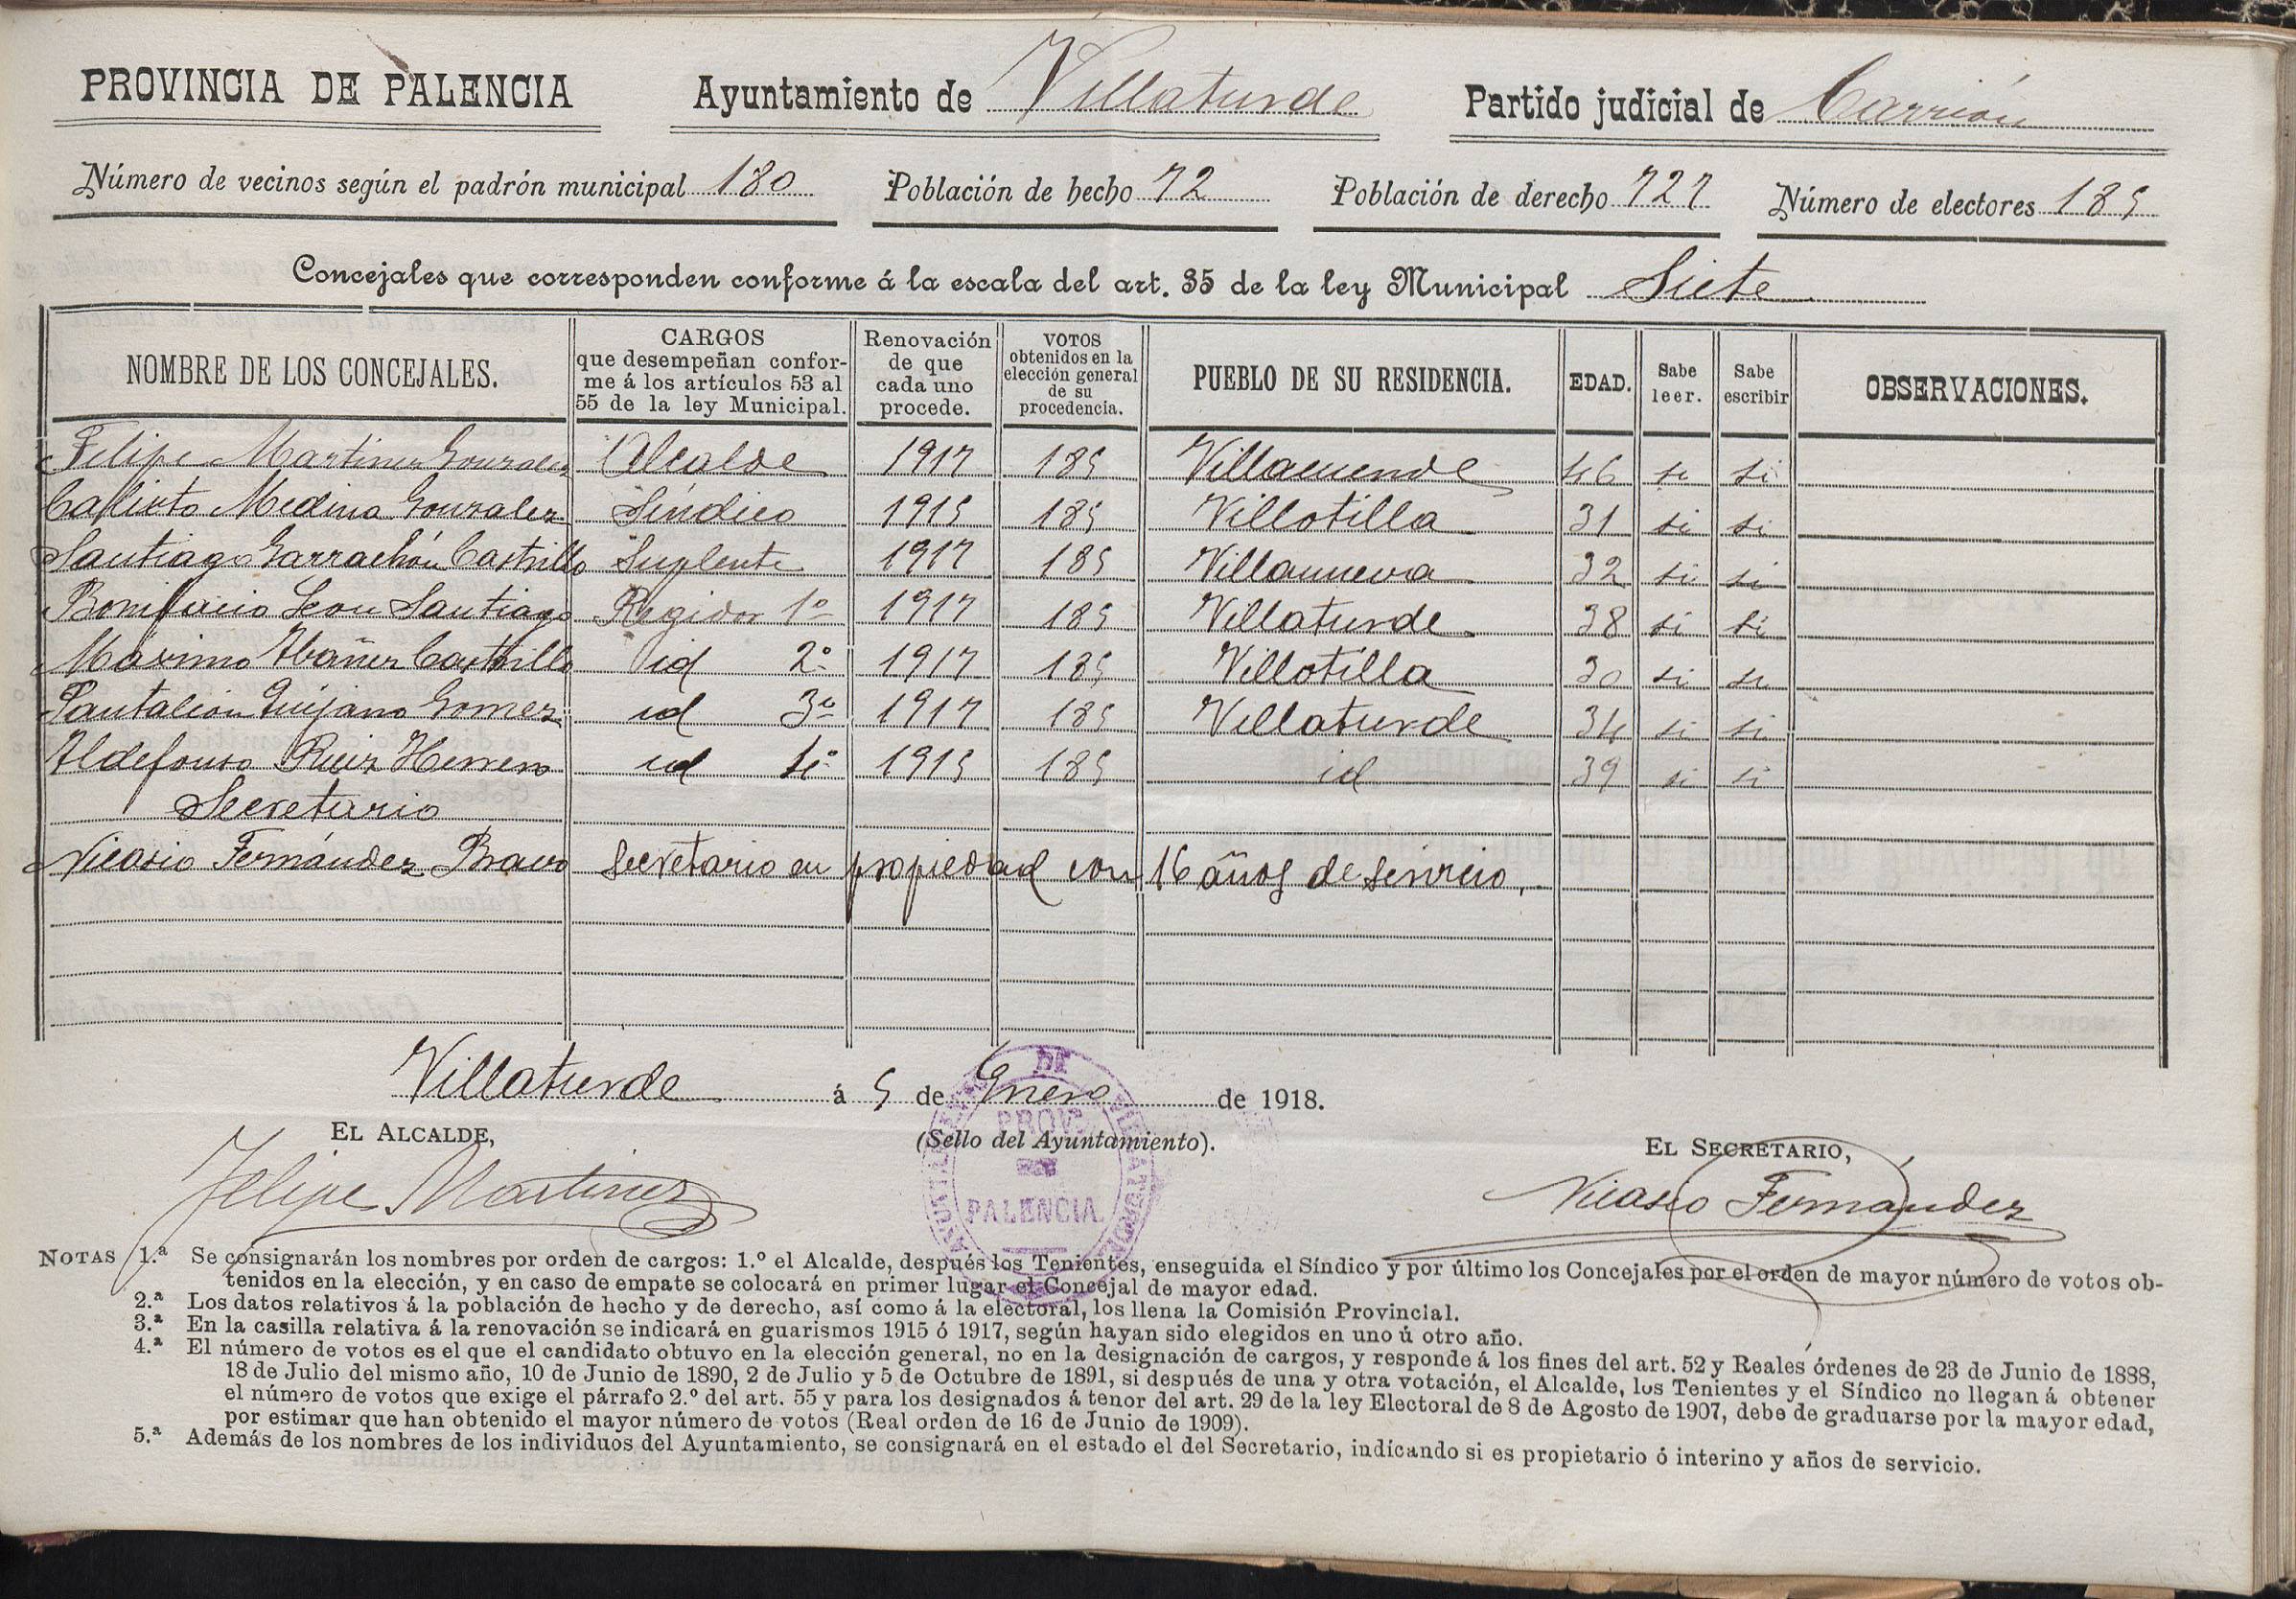 PROVINCIA DE PALENCIA Ayuntamiento de Villaturde Partido judicial de Carrión
Número de vecinos según el padrón municipal 180 Población de hecho 72 Población de derecho 727 Número de electores 185
Concejales que corresponden conforme á la escala del art. 35 de la ley Municipal Siete
NOMBRE DE LOS CONCEJALES.
CARGOS
que desempeñan confor-
me á los artículos 53 al
55 de la ley Municipal.
Renovación
de que
cada uno
procede.
VOTOS
obtenidos en la
elección general
de su
procedencia.
PUEBLO DE SU RESIDENCIA.
EDAD.
Sabe
leer.
Sabe
escribir
OBSERVACIONES.
Felipe Martinez Gonzalez Alcalde 1917 185 Villacuende 46 si si
Calixto Medina Gonzalez Síndico 1915 185 Villotilla 31 si si
Santiago Garrachón Castrillo Suplente 1917 185 Villanueva 32 si si
Bonifacio Leon Santiago Regidor 1º 1917 185 Villaturde 38 si si
Máximo Ibañez Castrillo id 2º 1917 185 Villotilla 30 si si
Pantaleón Quijano Gomez id 3º 1917 185 Villaturde 34 si si
Ildefonso Ruiz Herrero id 4º 1915 185 id 39 si si
Secretario
Nicasio Fernández Bravo Secretario en propiedad con 16 años de servicio.
Villaturde á 5 de Enero de 1918.
EL ALCALDE, (Sello del Ayuntamiento). EL SECRETARIO,
AYUNTAMIENTO DE VILLATURDE
PROVª
DE
PALENCIA
Felipe Martinez Nicasio Fernández
NOTAS 1.ª Se consignarán los nombres por orden de cargos: 1.º el Alcalde, después los Tenientes, enseguida el Síndico y por último los Concejales por el orden de mayor número de votos ob-
tenidos en la elección, y en caso de empate se colocará en primer lugar el Concejal de mayor edad.
2.ª Los datos relativos á la población de hecho y de derecho, así como á la electoral, los llena la Comisión Provincial.
3.ª En la casilla relativa á la renovación se indicará en guarismos 1915 ó 1917, según hayan sido elegidos en uno ú otro año.
4.ª El número de votos es el que el candidato obtuvo en la elección general, no en la designación de cargos, y responde á los fines del art. 52 y Reales órdenes de 23 de Junio de 1888,
18 de Julio del mismo año, 10 de Junio de 1890, 2 de Julio y 5 de Octubre de 1891, si después de una y otra votación, el Alcalde, los Tenientes y el Síndico no llegan á obtener
el número de votos que exige el párrafo 2.º del art. 55 y para los designados á tenor del art. 29 de la ley Electoral de 8 de Agosto de 1907, debe de graduarse por la mayor edad,
por estimar que han obtenido el mayor número de votos (Real orden de 16 de Junio de 1909).
5.ª Además de los nombres de los individuos del Ayuntamiento, se consignará en el estado el del Secretario, indicando si es propietario ó interino y años de servicio.